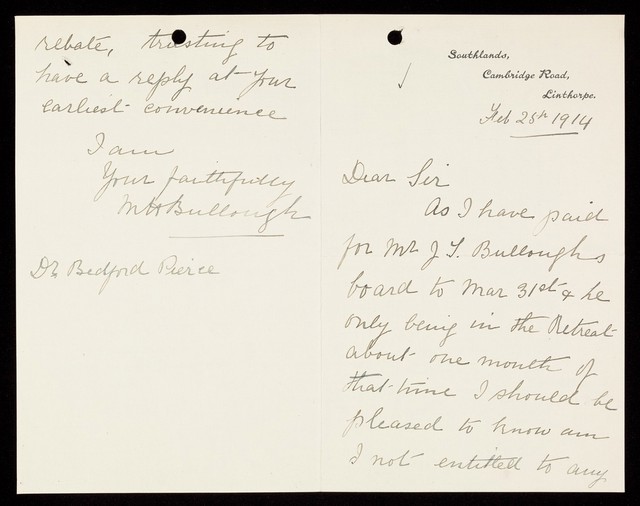 Southlands,
Cambridge Road,
Linthorpe.
Feb 25th 1914
Dear Sir
As I have paid
for Mr J. S. Bulloughs
board to Mar 31st & he
only being in the Retreat
about one month of
that time I should be
pleased to know am
I not entitled to any
rebate, trusting to
have a reply at your
earliest convenience
I am
Your faithfully
MH Bullough
Dr Bedford Pierce